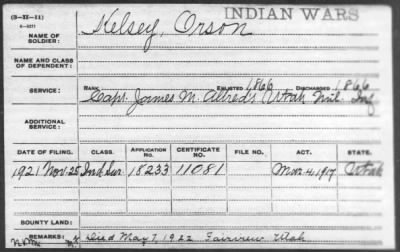 INDIAN WARS
(3-MM-11)
NAME OF SOLDIER: Kelsey, Orson
NAME AND CLASS OF DEPENDENT:
RANK ENLISTED 1866 DISCHARGED 1866
SERVICE: Capt. James M. Allred's Utah Mil. Inf
ADDITIONAL SERVICE:
DATE OF FILING. CLASS. APPLICATION NO. CERTIFICATE NO. FILE NO. ACT. STATE.
1921 Nov. 25 Ind Sur. 18233 11081 Mar. 4, 1917 Utah
BOUNTY LAND:
REMARKS: Died May 7, 1922 Fairview, Utah